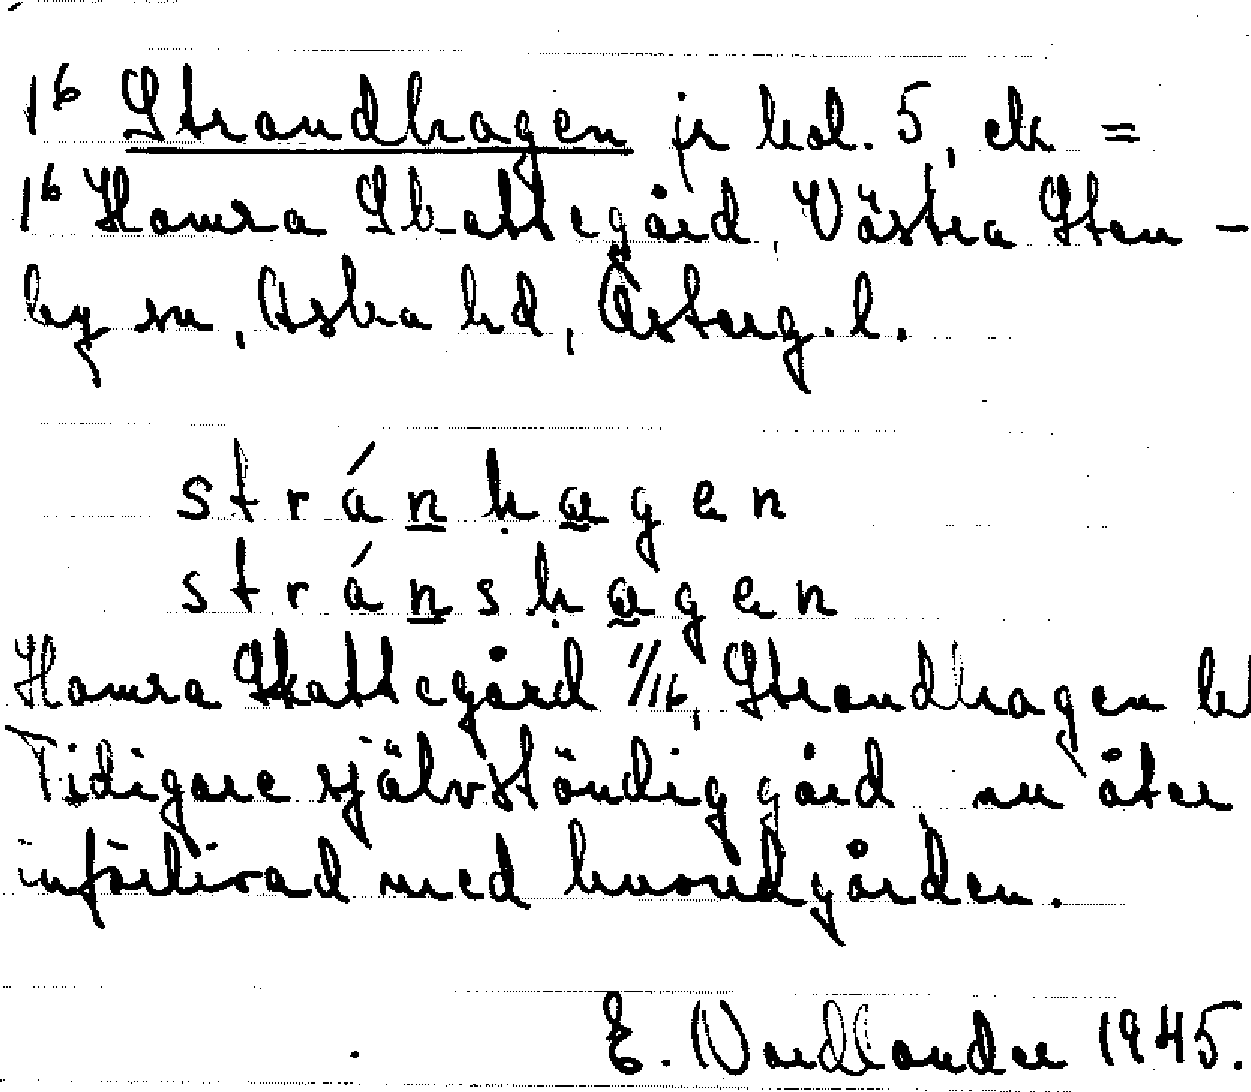 1⁶ Strandhagen jr kol. 5, ek =
1⁶ Hamra Skattegård, Västra Sten-
by sn, Aska hd, Österg. l.
stránhagen
stránshagen
Hamra Skattegård 1/16, Strandhagen kl
Tidigare självständig gård, nu åter
införlivad med huvudgården.
E. Nordlander 1945.